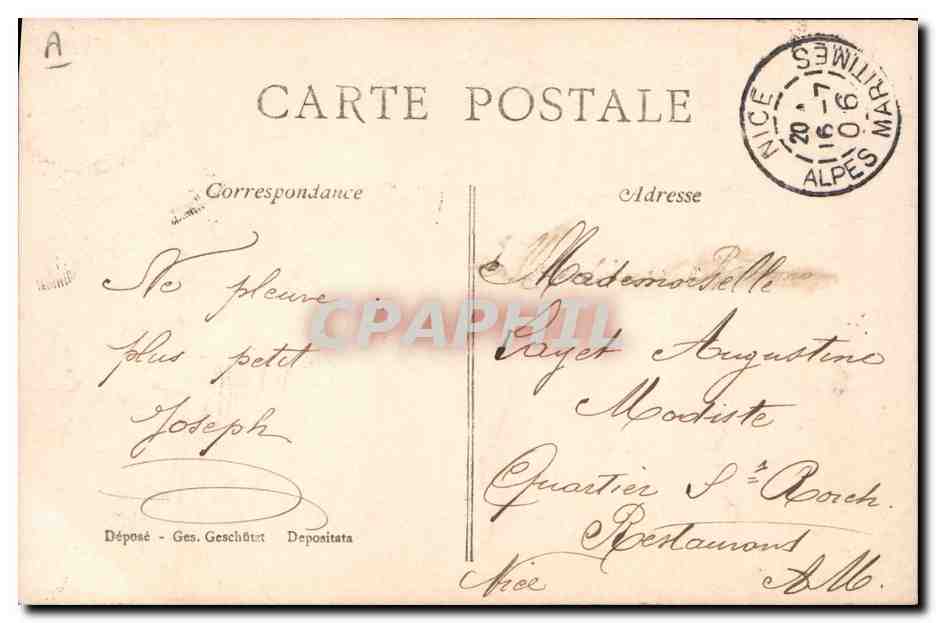 A
CARTE POSTALE
NICE
20
16 -7
06
ALPES MARITIMES
Correspondance
Ne pleure
plus petit
Joseph
Déposé - Ges. Geschützt Depositata
Adresse
Mademoiselle
Augustine
Modiste
Quartier St Roch.
Restaurant
Nice A M.
CPAPHIL